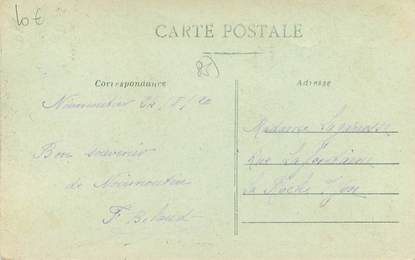 10 €
CARTE POSTALE
85
Correspondance
Adresse
Noirmoutier 22/8/20
Bon souvenir
de Noirmoutier
F. Beland
Madame
Rue La Fontaine
La Roche s/Yon